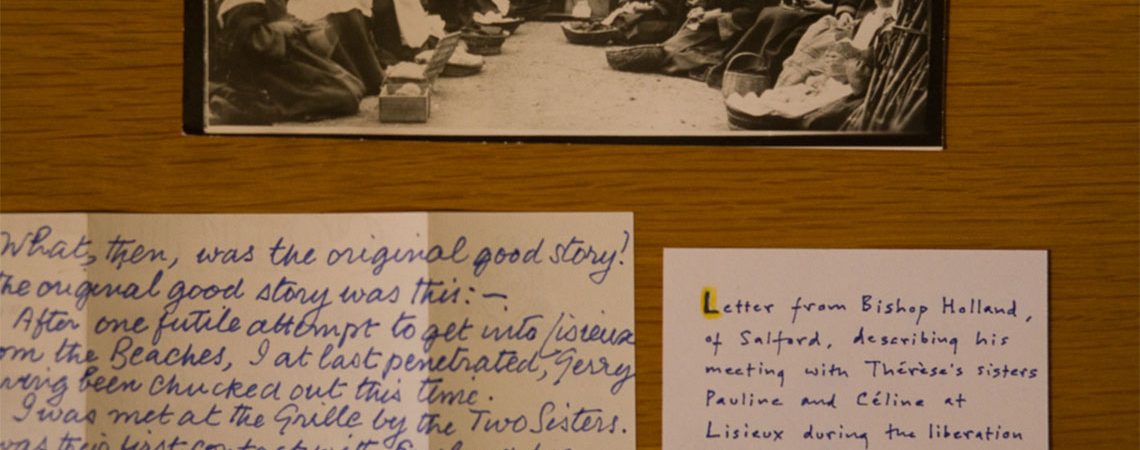 What, then, was the original good story?
the original good story was this:—
After one futile attempt to get into Lisieux
om the Beaches, I at last penetrated, Gerry
ving been chucked out this time.
I was met at the Grille by the Two Sisters.
was their first contact with
Letter from Bishop Holland,
of Salford, describing his
meeting with Thérèse's sisters
Pauline and Céline at
Lisieux during the liberation